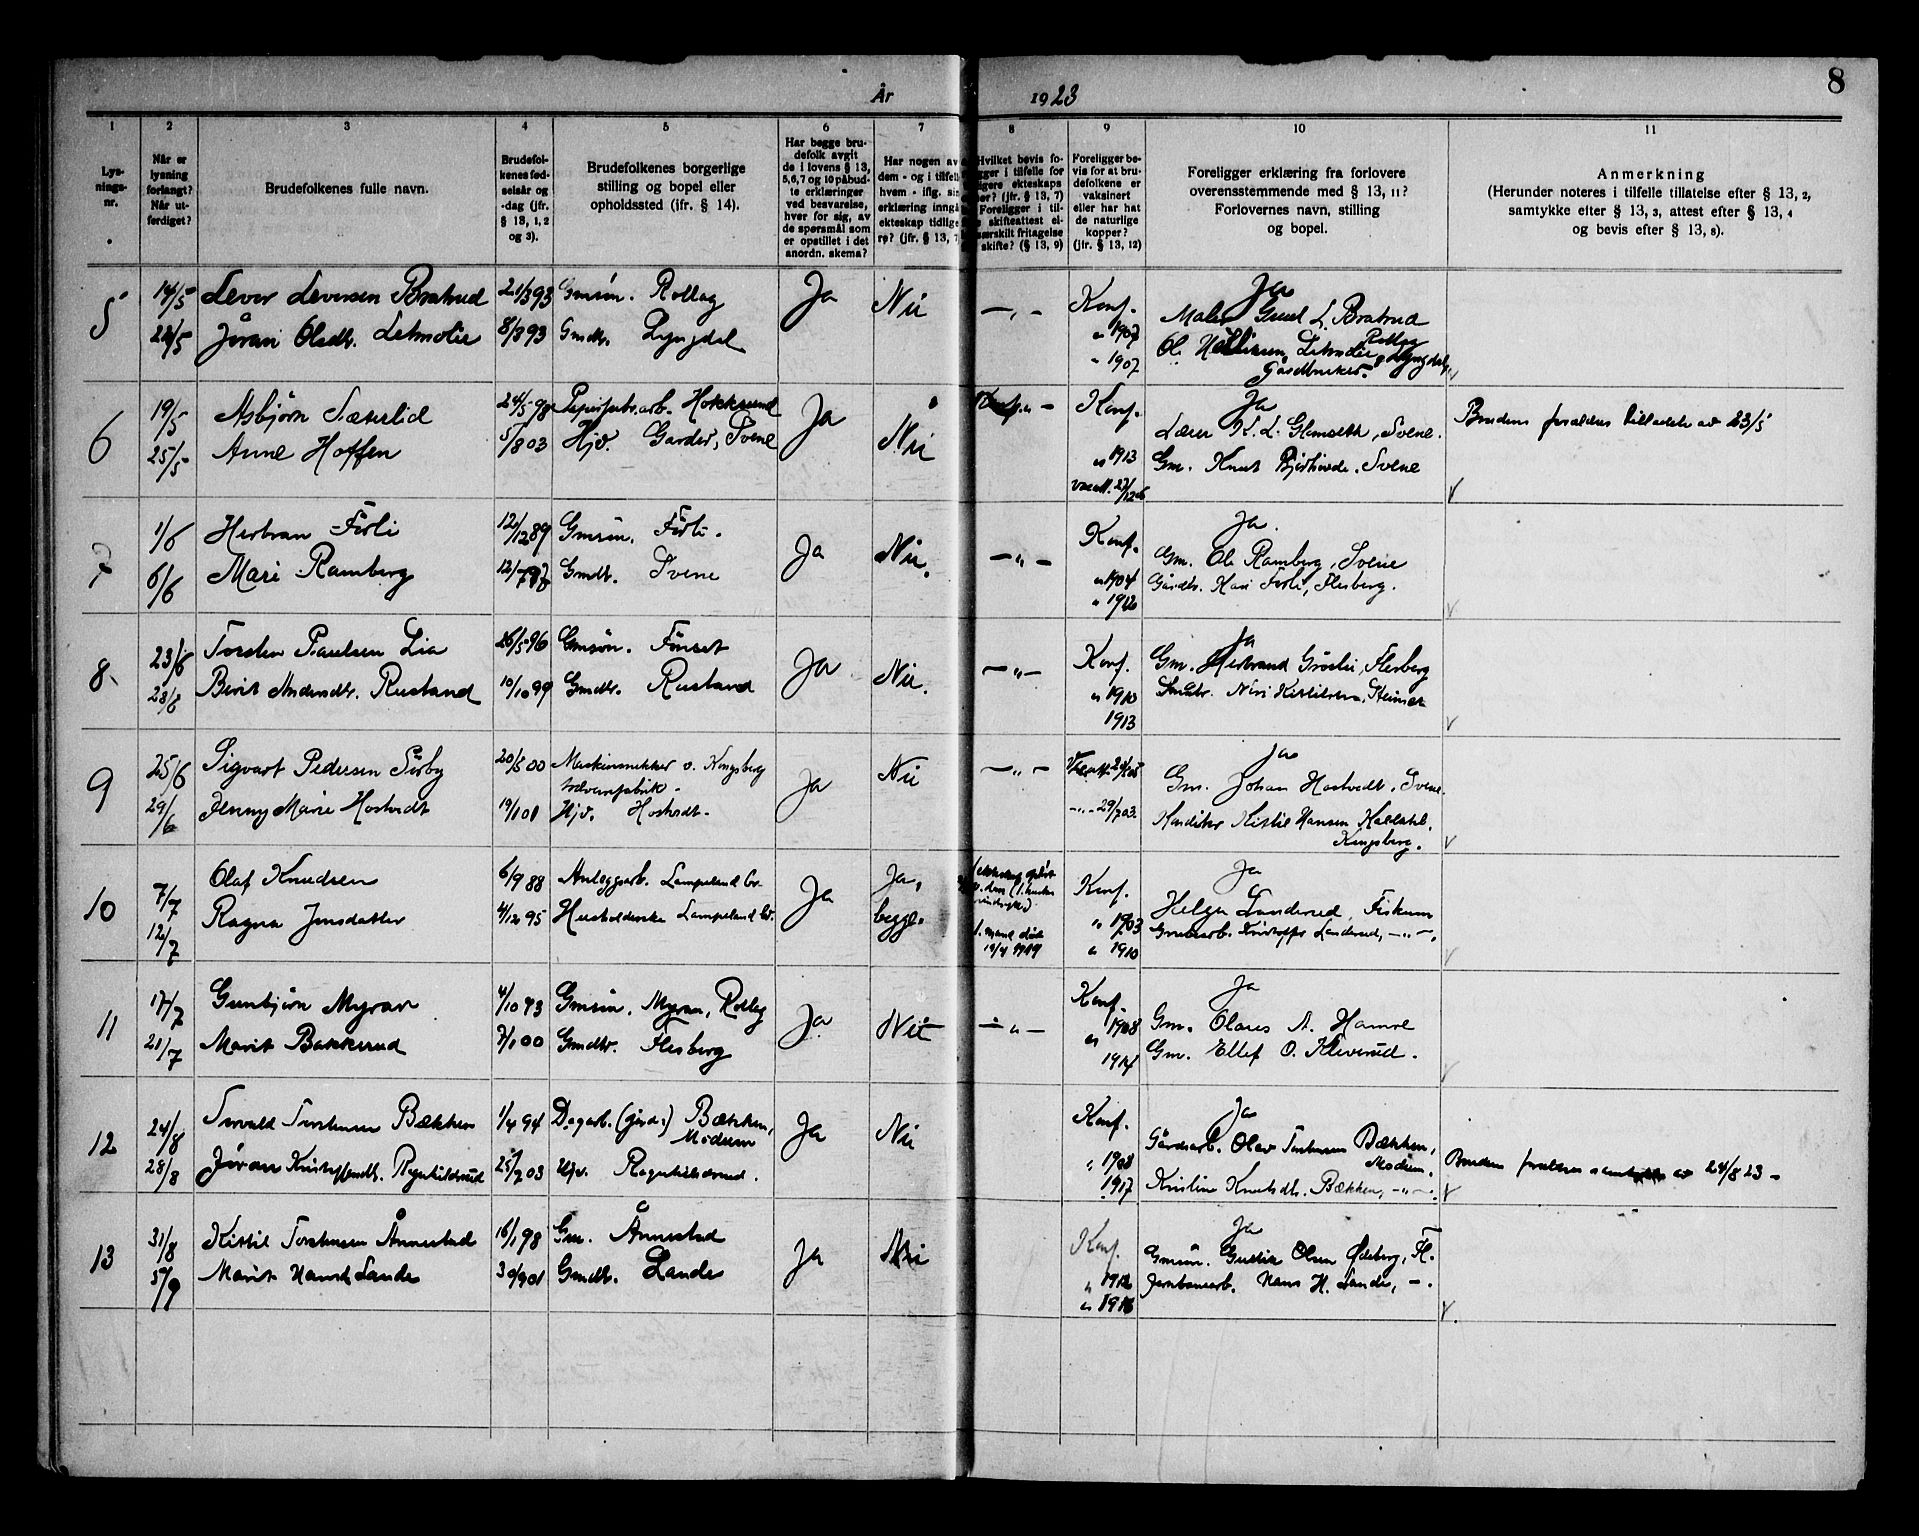 8
År 1923
1 2 3 4 5 6 7 8 9 10 11
Lys-
nings-
nr.
Når er
lysning
forlangt?
Når ut-
ferdiget?
Brudefolkenes fulle navn.
Brudefol-
kenes fød-
selsår og
-dag (jfr.
§ 13, 1, 2
og 3).
Brudefolkenes borgerlige
stilling og bopel eller
opholdssted (jfr. § 14).
Har begge bru-
defolk avgit
de i lovens § 13,
5,6,7 og 10 påbud-
te erklæringer
ved besvarelse,
hver for sig, av
de spørsmål som
er opstillet i det
anordn. skema?
Har nogen av
dem - og i tilfelle
hvem - iflg. sin
erklæring inngå
ekteskap tidlige-
re? (jfr. § 13, 7
Hvilket bevis fo-
ligger i tilfelle for
ligere ekteskaps
? (jfr. § 13, 7)
Foreligger i til-
skifteattest el-
særskilt fritagelse
skifte? (§ 13, 9)
Foreligger be-
vis for at bru-
defolkene er
vaksinert
eller har hat
de naturlige
kopper?
(jfr. § 13, 12)
Foreligger erklæring fra forlovere
overensstemmende med § 13, 11?
Forlovernes navn, stilling
og bopel.
Anmerkning
(Herunder noteres i tilfelle tillatelse efter § 13, 2,
samtykke efter § 13, 3, attest efter § 13, 4
og bevis efter § 13, 8).
5 14/5 Lever Leversen Bratrud 21/3 93 Gmsøn. Rollag Ja Nei — „ — Konf. Ja
Maler Gunl L. Bratrud
Jøran Olsdtr. Letmolie 8/3 93 Gmdtr. Lyngdal „ 1907 Rollag
„ 1907 Gårdbruker.
6 19/5 Asbjørn Sæterlid 24/5 98 Hokksund Ja Nei Konf. Ja
Lærer K. L. Glamseth, Svene. Brudens forældres tilladelse av 23/5
25/5 Anne Hoffen 5/8 03 Hjv. Garder, Svene „ 1913 Gm. Knut Svene
7 1/6 Herbran Førli 12/12 89 Gmsøn. Førli. Ja Nei. — „ — Konf. Ja.
6/6 Mari Ramberg Gmdt. Svene Gm. Ole Ramberg, Svene
„ 1904 Gårdbr. Kari Førli, Flesberg.
„ 1912
8. 23/6 Torsten Paulsen Lia 26/5 96 Gmsøn. Fønset Ja Nei. — „ — Konf. Ja
Gm. Herbrand Grøslie, Flesberg
28/6 Berit Andersdtr. Rustand 10/10 99 Gmdtr. Rustand „ 1910
1913
9 25/6 Sigvart Pedersen Sørby 20/5 00 Maskinsnekker v. Kongsberg Ja Nei — „ — Ja
våbenfabrik. Gm. Johan Hostvedt, Svene.
29/6 Jenny Marie Hostvedt 19/1 01 Hjv. Hostvedt. — „ — 29/7 03. Kistil Hansen
Kongsberg.
10 7/7 Olaf Knudsen 6/9 88 Anleggsarb. Lampeland br. Ja Ja, Konf. Ja
12/7 Ragna Jensdatter 4/12 95 Husholderske Lampeland br. begge. „ 1903 Helge Landerud, Fiskum
1. mand død „ 1910 Grubearb. Kristoffer Landerud, — „ —.
19/4 1919
11 17/7 Gunbjørn Myran 4/10 93 Gmsøn. Myran, Rollag Ja Nei — „ — Konf. Ja
„ 1908 Gm. Olaus A. Hamre
21/7 Marit Bakkerud 7/1 00 Gmdtr. Flesberg 1914 Gm. Ellef O. Kleverud.
12 24/8 Torvald Torstensen Bækken 1/4 94 Dagarb. (jord.) Bækken, Ja Nei Konf. Ja
Modum Gårdsarb. Olav Torstensen Bækken,
28/8 Jøran Kristoffersdt. Ragnhildsrud 25/7 03 Hjv. Ragnhildsrud. „ 1908 Modum. Brudens forældres samtykke av 24/8 23 –
„ 1917 Kristine Knutsdtr. Bækken, — „ —.
13 31/8 Kittil Torstensen Ånnestad 16/1 98 Gm. Ånnestad Ja Nei Konf. Ja
Gmsøn. Gustav Olsen Ødeberg, Fl.
5/9 Marit Hansdt. Lande 30/9 01 Gmdtr. Lande „ 1912 Jernbanearb. Hans H. Lande, —.
„ 1916